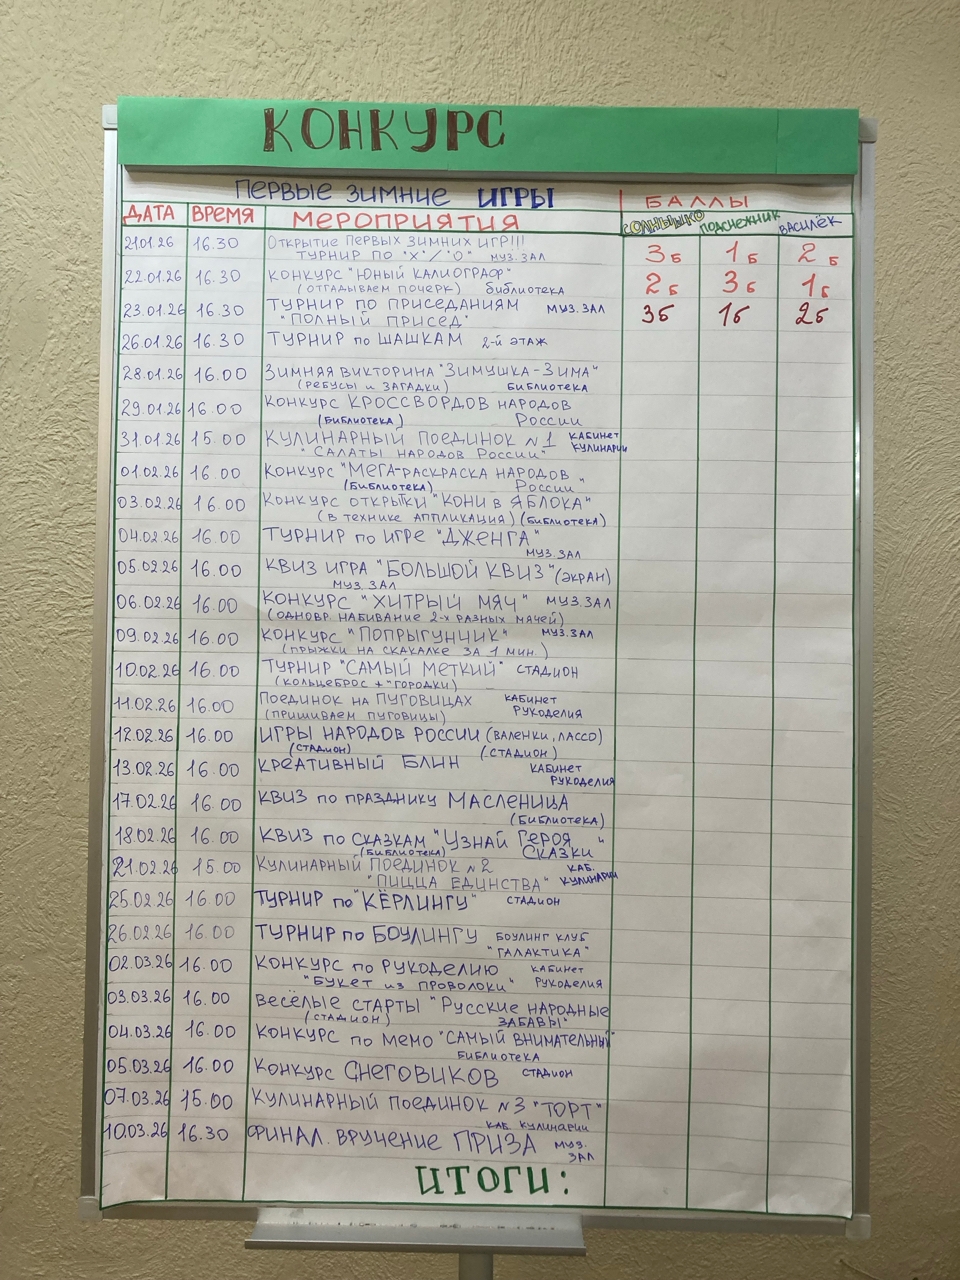 КОНКУРС
ПЕРВЫЕ ЗИМНИЕ ИГРЫ
БАЛЛЫ
ДАТА ВРЕМЯ МЕРОПРИЯТИЯ СОЛНЫШКО ПОДСНЕЖНИК ВАСИЛЁК
21.01.26 16.30 Открытие первых зимних игр!!! 3б 1б 2б
ТУРНИР ПО "Х"/"О" муз.зал
22.01.26 16.30 КОНКУРС "ЮНЫЙ КАЛИОГРАФ" 2б 3б 1б
(отгадываем почерк) библиотека
23.01.26 16.30 ТУРНИР ПО ПРИСЕДАНИЯМ муз.зал 3б 1б 2б
"ПОЛНЫЙ ПРИСЕД"
26.01.26 16.30 ТУРНИР по ШАШКАМ 2-й этаж
28.01.26 16.00 ЗИМНЯЯ ВИКТОРИНА "ЗИМУШКА-ЗИМА"
(ребусы и загадки) библиотека
29.01.26 16.00 КОНКУРС КРОССВОРДОВ НАРОДОВ
(библиотека) России
31.01.26 15.00 КУЛИНАРНЫЙ ПОЕДИНОК №1 кабинет
"САЛАТЫ НАРОДОВ РОССИИ" кулинарии
01.02.26 16.00 КОНКУРС "МЕГА-РАСКРАСКА НАРОДОВ
(библиотека) России"
03.02.26 16.00 КОНКУРС ОТКРЫТКИ "КОНИ В ЯБЛОКА"
(в технике аппликация) (библиотека)
04.02.26 16.00 ТУРНИР по ИГРЕ "ДЖЕНГА"
муз.зал
05.02.26 16.00 КВИЗ ИГРА "БОЛЬШОЙ КВИЗ" (экран)
муз.зал
06.02.26 16.00 КОНКУРС "ХИТРЫЙ МЯЧ" муз.зал
(одновр набивание 2-х разных мячей)
09.02.26 16.00 КОНКУРС "ПОПРЫГУНЧИК" муз.зал
(прыжки на скакалке за 1 мин.)
10.02.26 16.00 ТУРНИР "САМЫЙ МЕТКИЙ" стадион
(кольцеброс + "городки)
11.02.26 16.00 ПОЕДИНОК НА ПУГОВИЦАХ кабинет
(пришиваем пуговицы) рукоделия
12.02.26 16.00 ИГРЫ НАРОДОВ РОССИИ (валенки, лассо)
(стадион) (стадион)
13.02.26 16.00 КРЕАТИВНЫЙ БЛИН кабинет
рукоделия
17.02.26 16.00 КВИЗ по ПРАЗДНИКУ МАСЛЕНИЦА
(библиотека)
18.02.26 16.00 КВИЗ по СКАЗКАМ "УЗНАЙ ГЕРОЯ
(библиотека) СКАЗКИ"
21.02.26 15.00 КУЛИНАРНЫЙ ПОЕДИНОК №2 каб.
"ПИЦЦА ЕДИНСТВА" кулинарии
25.02.26 16.00 ТУРНИР по "КЁРЛИНГУ" стадион
26.02.26 16.00 ТУРНИР по БОУЛИНГУ боулинг клуб
"Галактика"
02.03.26 16.00 КОНКУРС по РУКОДЕЛИЮ кабинет
"БУКЕТ ИЗ ПРОВОЛОКИ" рукоделия
03.03.26 16.00 ВЕСЁЛЫЕ СТАРТЫ "РУССКИЕ НАРОДНЫЕ
(стадион) ЗАБАВЫ"
04.03.26 16.00 КОНКУРС по МЕМО "САМЫЙ ВНИМАТЕЛЬНЫЙ"
библиотека
05.03.26 16.00 КОНКУРС СНЕГОВИКОВ стадион
07.03.26 15.00 КУЛИНАРНЫЙ ПОЕДИНОК №3 "ТОРТ"
каб. кулинарии
10.03.26 16.30 ФИНАЛ. ВРУЧЕНИЕ ПРИЗА муз.
зал
ИТОГИ: